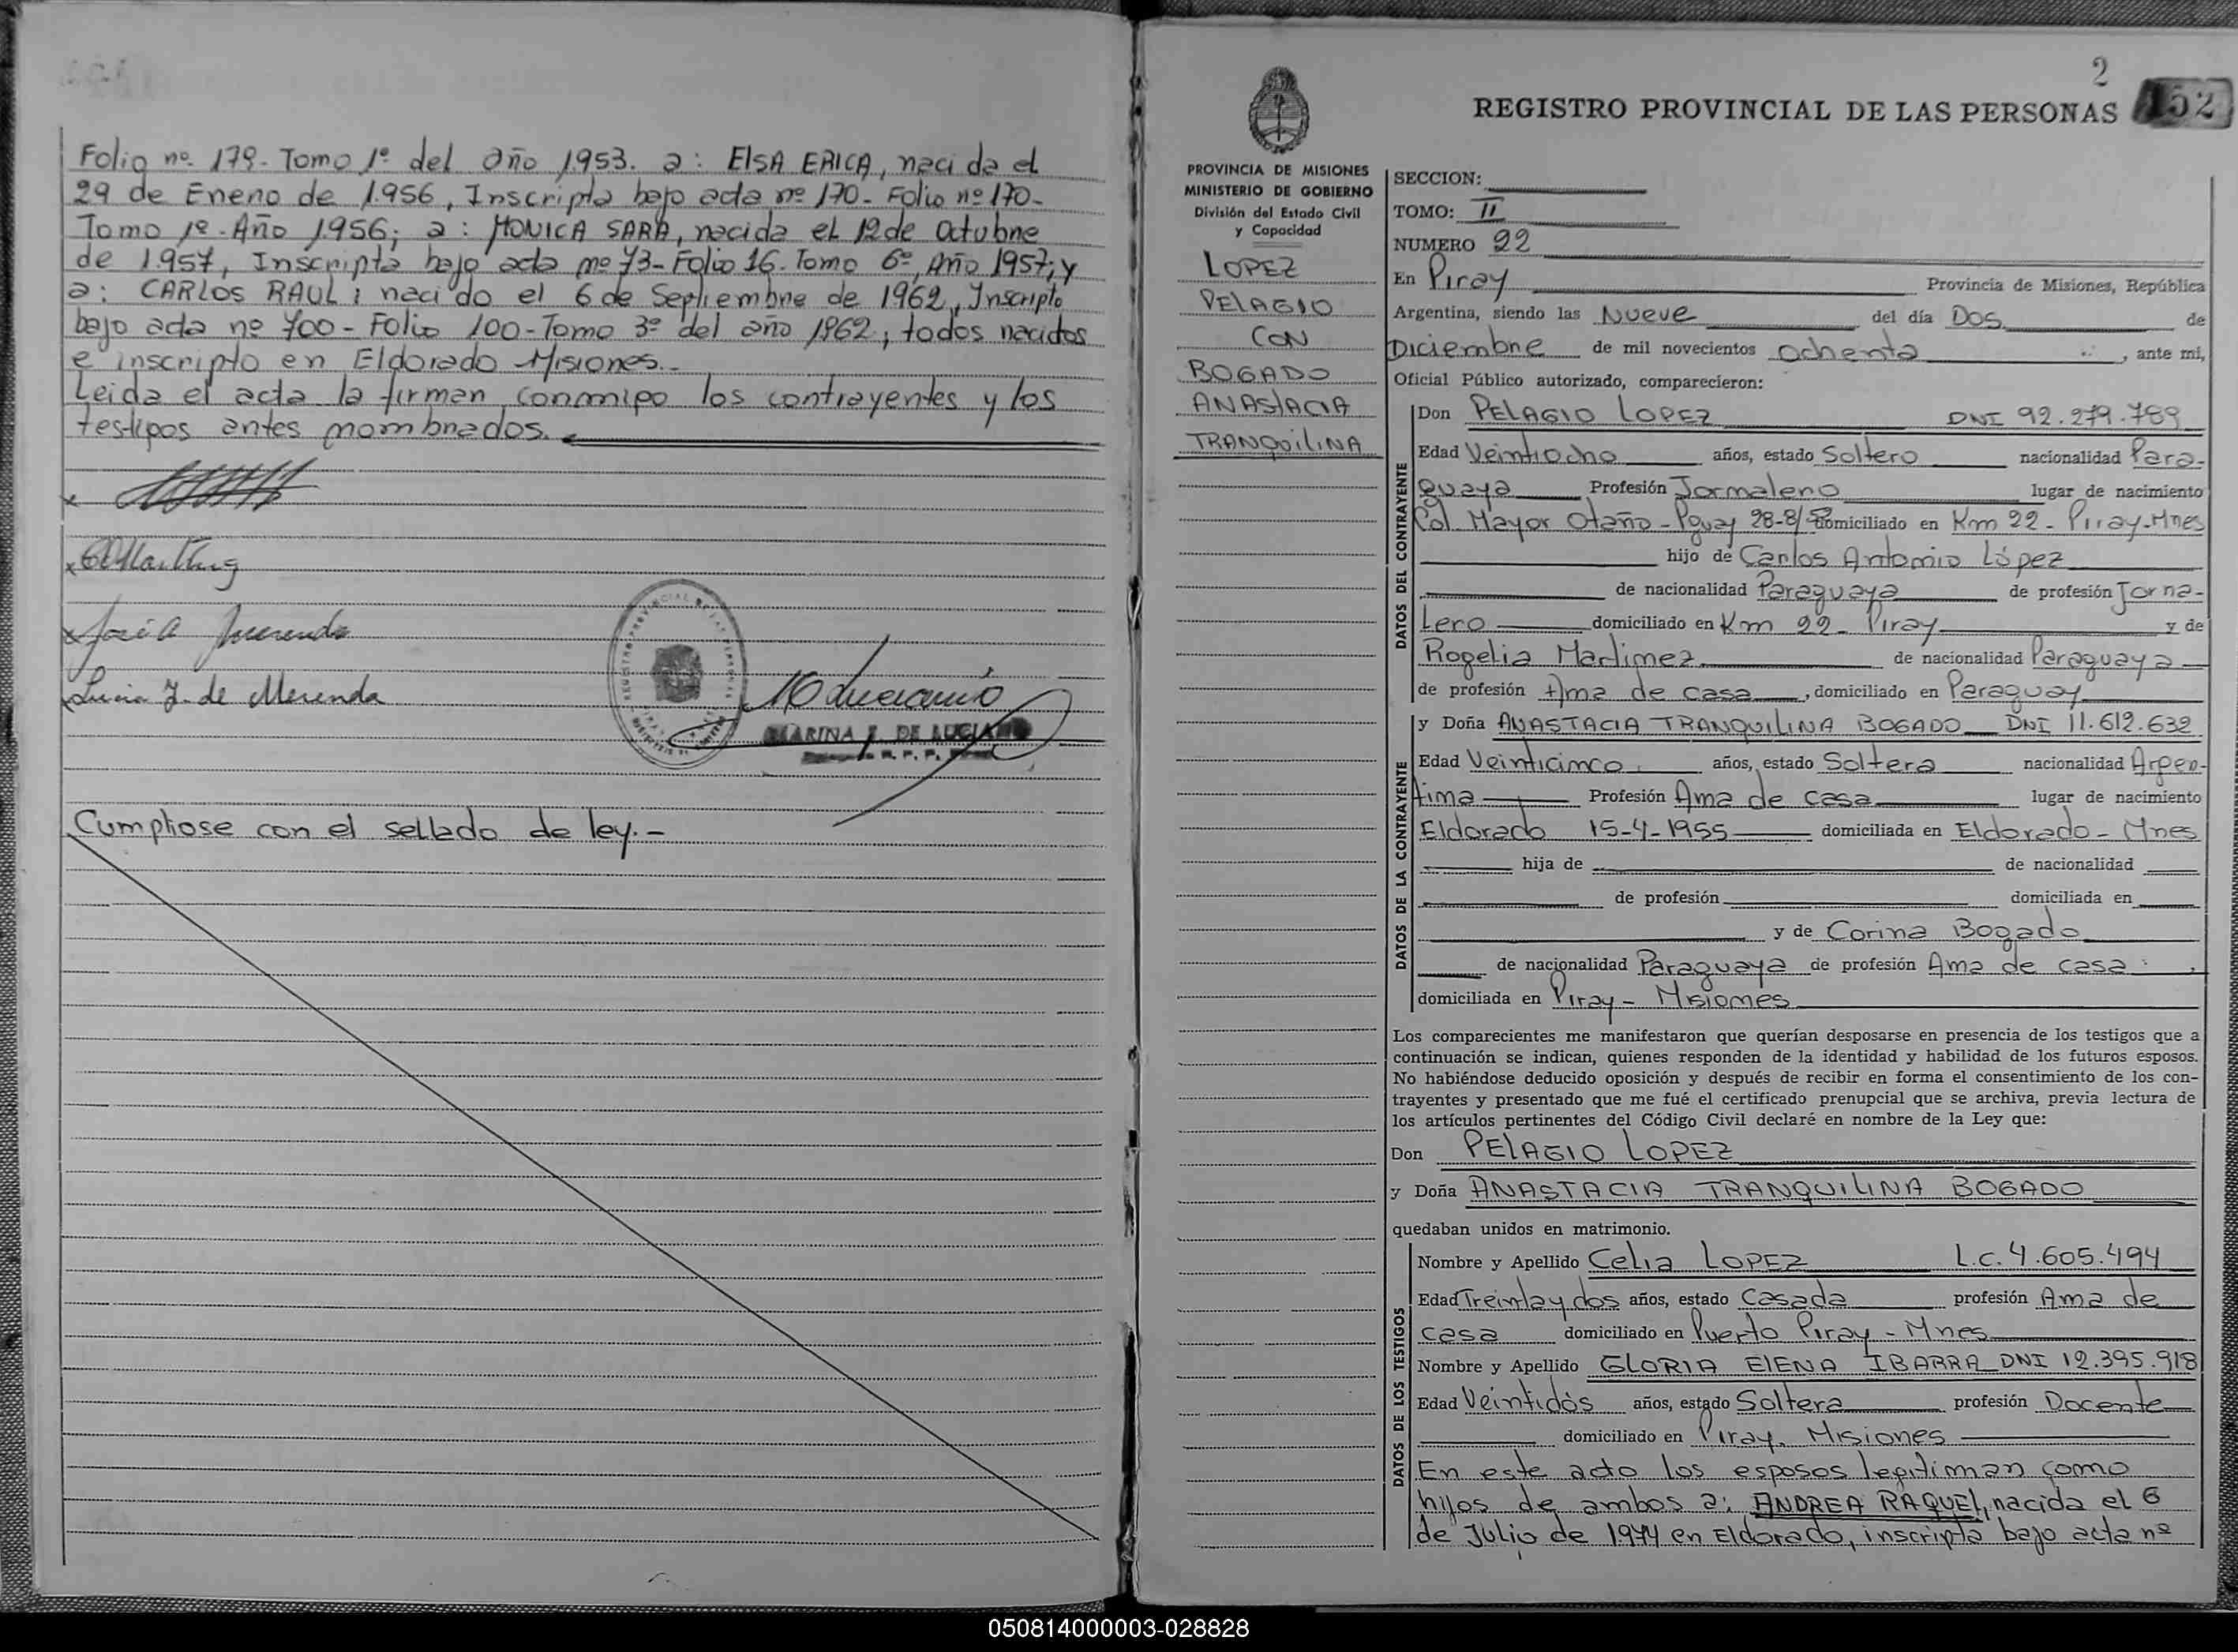 Folio nº 179- Tomo 1º del año 1953. a: ElSA ERICA, nacida el
29 de Enero de 1.956, Inscripta bajo acta nº 170- Folio nº 170-
Tomo 1º- Año 1956; a: MONICA SARA, nacida el 12 de Octubre
de 1.957, Inscripta bajo acta nº 73- Folio 16- Tomo 6º, Año 1957; y
a: CARlOS RAUL; nacido el 6 de Septiembre de 1962, Inscripto
bajo acta nº 700- Folio 100- Tomo 3º del año 1962, todos nacidos
e inscripto en Eldorado Misiones.-
Leida el acta la firman conmigo los contrayentes y los
testigos antes mombrados.
x
x
x José A Merenda
x Lucia J. de Merenda
MARINA F. DE LUCIANO
Cumpliose con el sellado de ley.-
2
152
REGISTRO PROVINCIAL DE LAS PERSONAS
PROVINCIA DE MISIONES
MINISTERIO DE GOBIERNO
División del Estado Civil
y Capacidad
LOPEZ
PELAGIO
CON
BOGADO
ANASTACIA
TRANQUILINA
SECCION:
TOMO: II
NUMERO 22
En Piray Provincia de Misiones, República
Argentina, siendo las Nueve del día Dos de
Diciembre de mil novecientos ochenta, ante mi,
Oficial Público autorizado, comparecieron:
DATOS DEL CONTRAYENTE
Don PELAGIO LOPEZ DNI 92.279.789
Edad Veintiocho años, estado Soltero nacionalidad Para-
guaya Profesión Jornalero lugar de nacimiento
Col. Mayor Otaño- Pguay 28-8/ domiciliado en Km 22- Piray-Mnes
hijo de Carlos Antonio López
de nacionalidad Paraguaya de profesión Jorna-
Lero domiciliado en Km 22- Piray y de
Rogelia Martimez de nacionalidad Paraguaya
de profesión Ama de casa, domiciliado en Paraguay
DATOS DE LA CONTRAYENTE
y Doña ANASTACIA TRANQUILINA BOGADO DNI 11.612.632
Edad Veinticinco años, estado Soltera nacionalidad Argen-
tina Profesión Ama de casa lugar de nacimiento
Eldorado 15-4-1955 domiciliada en Eldorado- Mnes
hija de de nacionalidad
de profesión domiciliada en
y de Corina Bogado
de nacionalidad Paraguaya de profesión Ama de casa
domiciliada en Piray- Misiones
Los comparecientes me manifestaron que querían desposarse en presencia de los testigos que a
continuación se indican, quienes responden de la identidad y habilidad de los futuros esposos.
No habiéndose deducido oposición y después de recibir en forma el consentimiento de los con-
trayentes y presentado que me fué el certificado prenupcial que se archiva, previa lectura de
los artículos pertinentes del Código Civil declaré en nombre de la Ley que:
Don PElAGIO LOPEZ
y Doña ANASTACIA TRANQUILINA BOGADO
quedaban unidos en matrimonio.
DATOS DE LOS TESTIGOS
Nombre y Apellido Celia LOPEZ L.C. 4.605.494
Edad Treinta y dos años, estado Casada profesión Ama de
casa domiciliado en Puerto Piray- Mnes
Nombre y Apellido GLORIA ElENA IBARRA DNI 12.395.918
Edad Veintidós años, estado Soltera profesión Docente
domiciliado en Piray. Misiones
En este acto los esposos legitiman como
hijos de ambos a: ANDREA RAQUEl, nacida el 6
de Julio de 1.974 en Eldorado, inscripta bajo acta nº
050814000003-028828